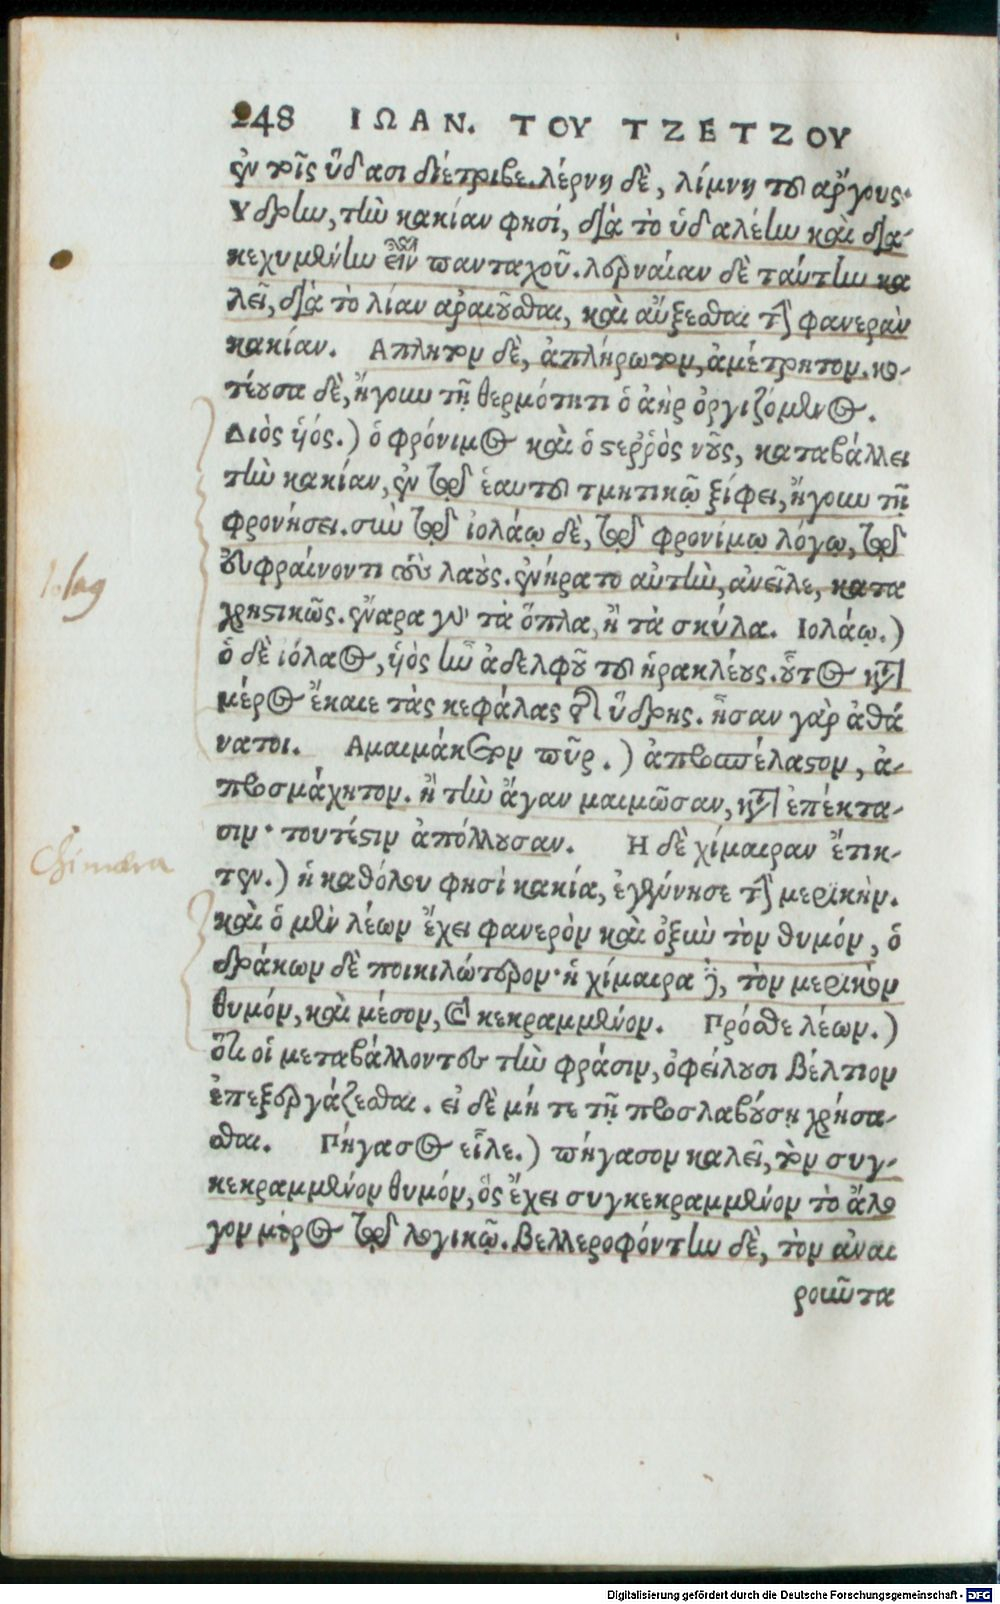 248 ΙΩΑΝ. ΤΟΥ ΤΖΕΤΖΟΥ
ἐν τοῖς ὕδασι διέτριβε. λέρνη δὲ, λίμνη τοῦ ἄργους.
Υδρην, τὴν κακίαν φησί, διὰ τὸ ὑδαλέην καὶ δια-
κεχυμένην εἶναι πανταχοῦ. λερναίαν δὲ ταύτην κα
λεῖ, διὰ τὸ λίαν ἀραιοῦσθαι, καὶ αὔξεσθαι τὴν φανερὰν
κακίαν. Απλητον δὲ, ἀπλήρωτον, ἀμέτρητον. κο-
τέουσα δὲ, ἤγουν τῇ θερμότητι ὁ ἀὴρ ὀργιζόμενος.
Διὸς ὑός.) ὁ φρόνιμος καὶ ὁ στερρὸς νοῦς, καταβάλλει
τὴν κακίαν, ἐν τῷ ἑαυτοῦ τμητικῷ ξίφει, ἤγουν τῇ
φρονήσει. σὺν τῷ ἰολάῳ δὲ, τῷ φρονίμω λόγῳ, τῷ
εὐφραίνοντι τοὺς λαούς. ἐνήρατο αὐτὴν, ἀνεῖλε, κατα
χρηστικῶς. ἔναρα γὰρ τὰ ὅπλα, ἢ τὰ σκύλα. Ιολάῳ.)
ὁ δὲ ιόλαος, ὑὸς ἦν ἀδελφοῦ τοῦ ἡρακλέους. οὗτος κατὰ
μέρος ἔκαιε τὰς κεφάλας τῆς ὕδρης. ἦσαν γὰρ ἀθά
νατοι. Αμαιμάκετον πῦρ.) ἀπροσπέλαστον, ἀ-
προσμάχητον. ἢ τὴν ἄγαν μαιμῶσαν, κατὰ ἐπέκτα-
σιν· τουτέστιν ἀπόλλυσαν. Η δὲ χίμαιραν ἔτικ-
τεν.) ἡ καθόλου φησὶ κακία, ἐγέννησε τὴν μερικὴν.
καὶ ὁ μὲν λέων ἔχει φανερὸν καὶ ὀξὺν τὸν θυμόν, ὁ
δράκων δὲ ποικιλώτερον· ἡ χίμαιρα δὲ, τὸν μερικὸν
θυμόν, καὶ μέσον, καὶ κεκραμμένον. Πρόσθε λέων.)
ὅτι οἱ μεταβάλλοντες τὴν φράσιν, ὀφείλουσι βέλτιον
ἐπεξεργάζεσθαι. εἰ δὲ μή τε τῇ προσλαβούσῃ χρήσα-
σθαι. Πήγασος εἷλε.) πήγασον καλεῖ, τὸν συγ-
κεκραμμένον θυμόν, ὃς ἔχει συγκεκραμμένον τὸ ἄλο
γον μέρος τῷ λογικῷ. Βελλεροφόντην δὲ, τὸν ἀναι
ροῦντα
Iolas
Chimæra
Digitalisierung gefördert durch die Deutsche Forschungsgemeinschaft - DFG